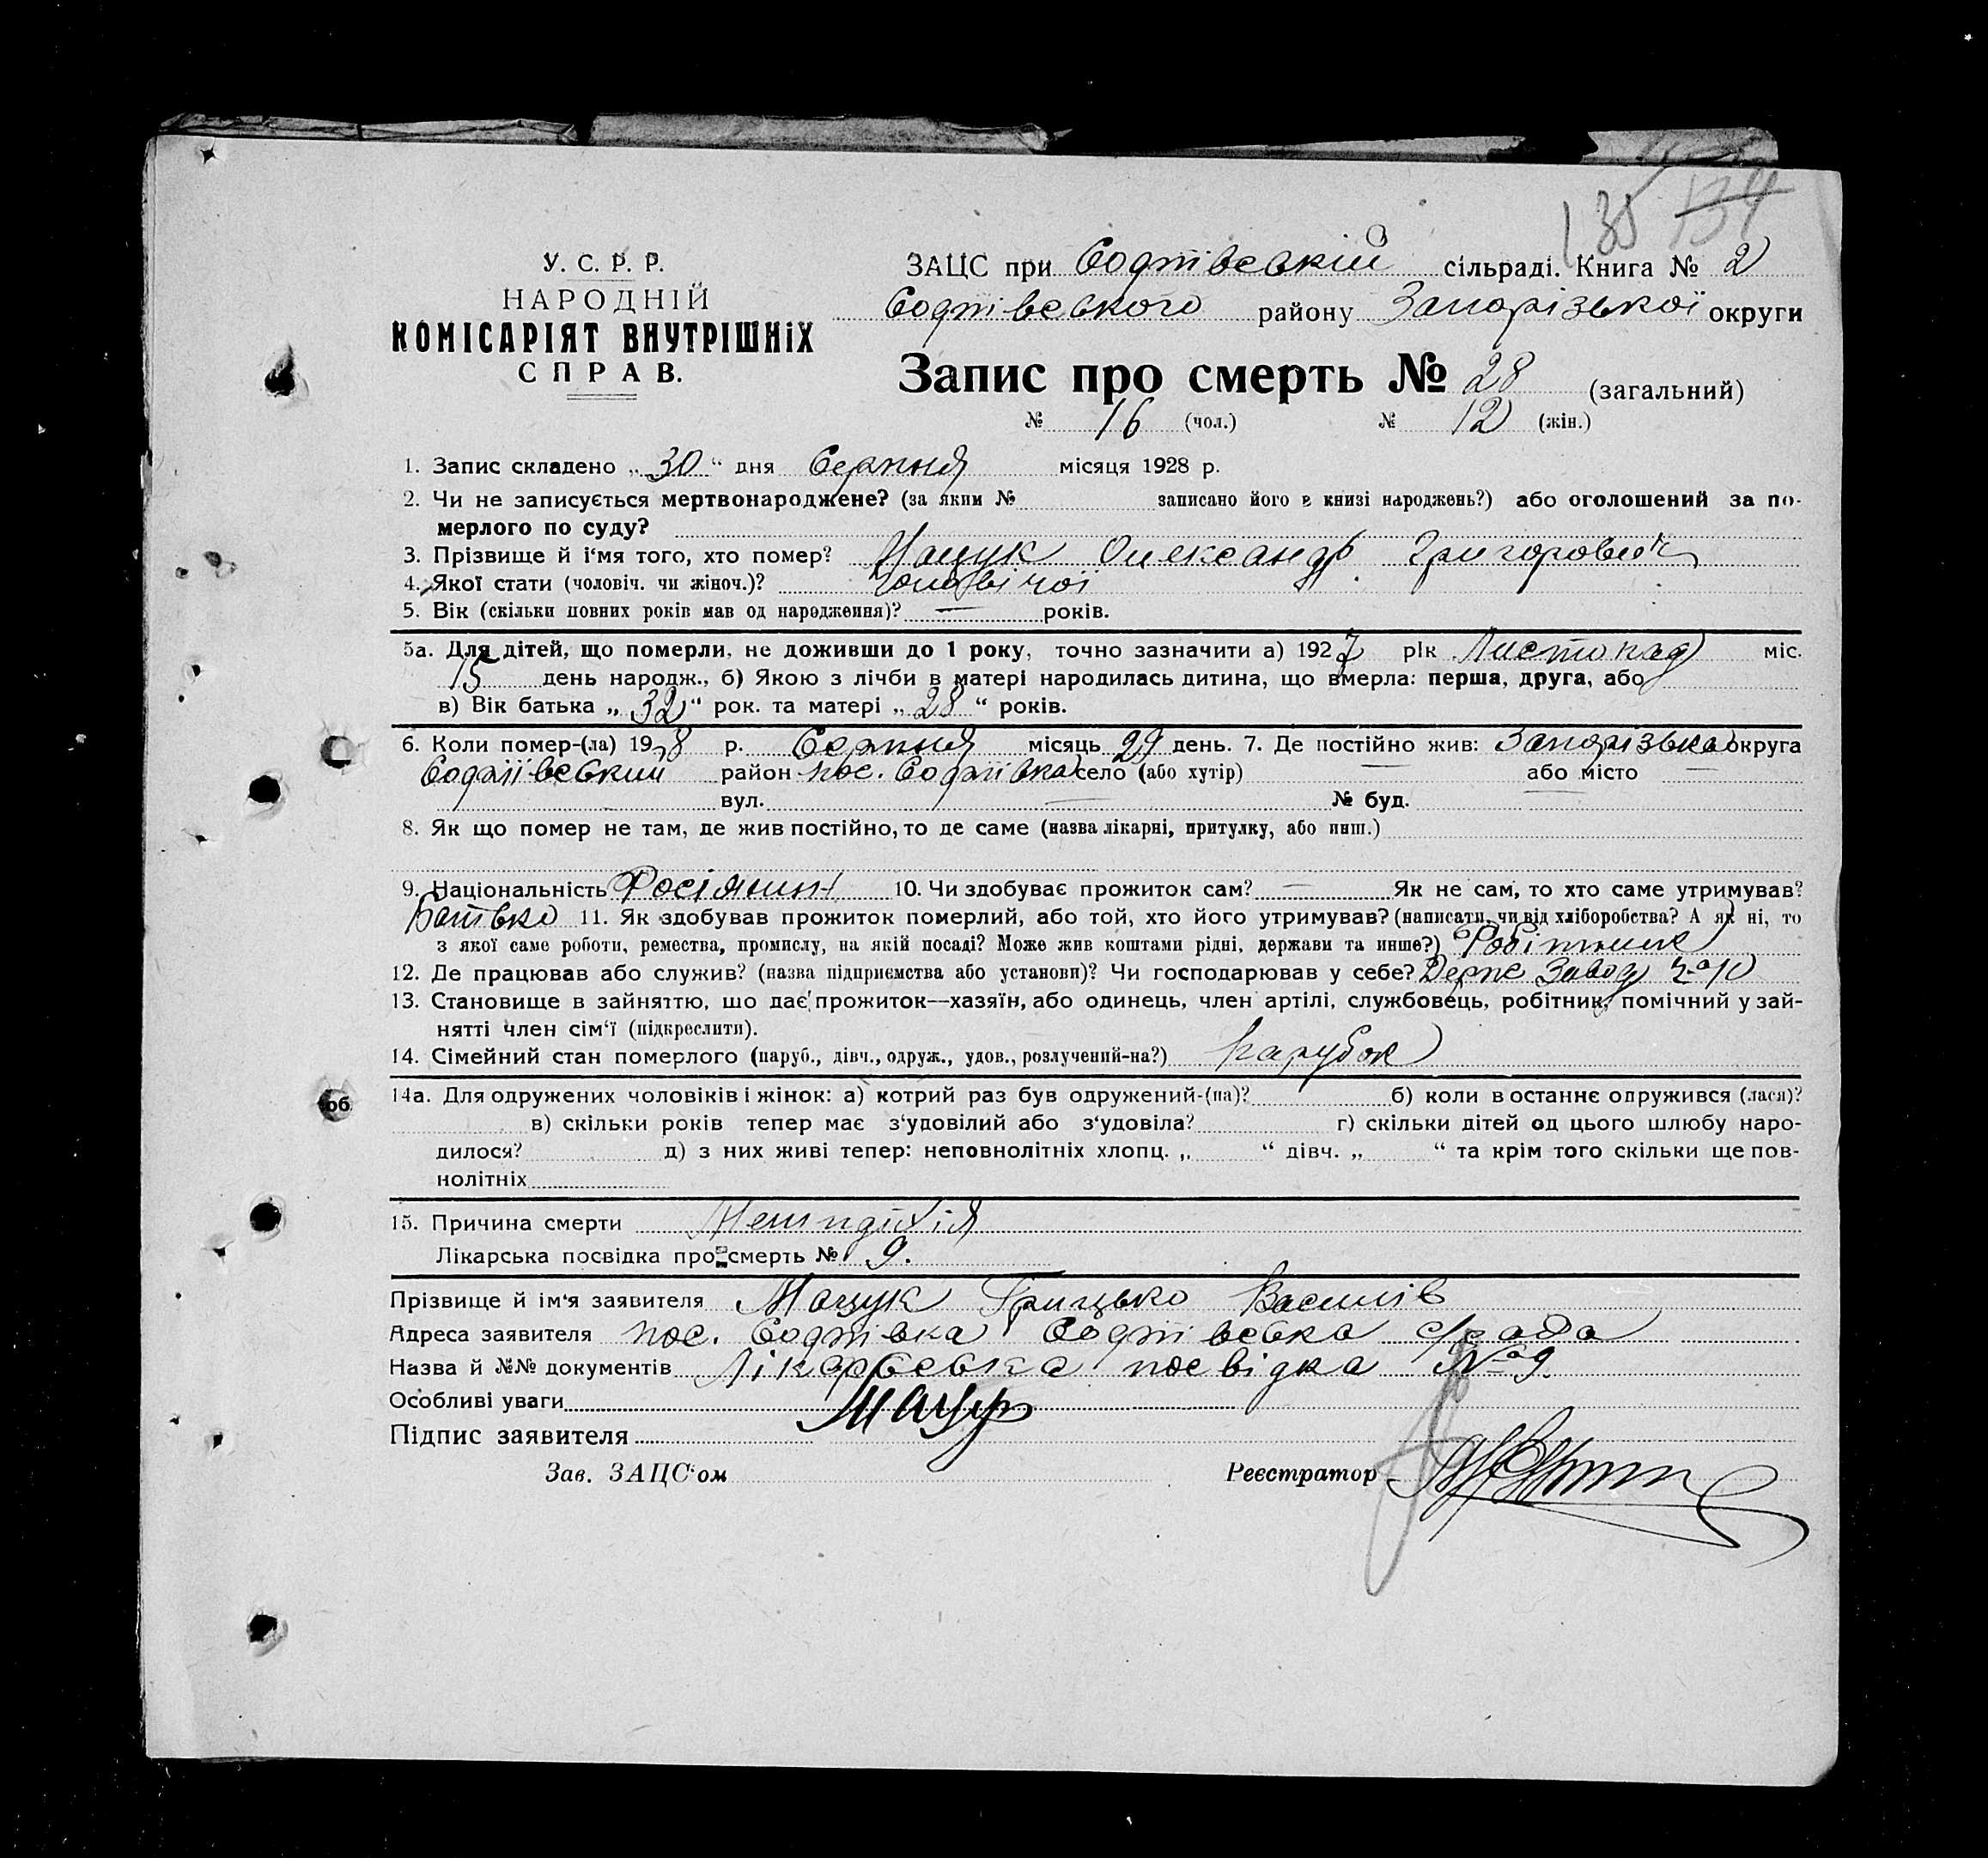 135 134
У. С. Р. Р.
НАРОДНІЙ
КОМІСАРІЯТ ВНУТРІШНІХ
СПРАВ.
ЗАЦС при Софіївській сільраді. Книга № 2
Софіївського району Запорізької округи
Запис про смерть № 28 (загальний)
№ 16 (чол.) № 12 (жін.)
1. Запис складено „30“ дня Серпня місяця 1928 р.
2. Чи не записується мертвонароджене? (за яким № записано його в книзі народжень?) або оголошений за по-
мерлого по суду?
3. Прізвище й і'мя того, хто помер? Мацук Олександр Григорович
4. Якої стати (чоловіч. чи жіноч.)? чоловічої
5. Вік (скільки повних років мав од народження)? — років.
5а. Для дітей, що померли, не доживши до 1 року, точно зазначити а) 1927 рік Листопад міс.
15 день народж., б) Якою з лічби в матері народилась дитина, що вмерла: перша, друга, або
в) Вік батька „32“ рок. та матері „28“ років.
6. Коли помер-(ла) 1928 р. Серпня місяць 29 день. 7. Де постійно жив: Запорізька округа
Софіївський район пос. Софіївка село (або хутір) — або місто —
вул. — № буд.
8. Як що помер не там, де жив постійно, то де саме (назва лікарні, притулку, або инш.)
9. Національність Росіянин 10. Чи здобуває прожиток сам? — Як не сам, то хто саме утримував?
Батько 11. Як здобував прожиток померлий, або той, хто його утримував? (написати, чи від хліборобства? А як ні, то
з якої саме роботи, ремества, промислу, на якій посаді? Може жив коштами рідні, держави та инше?) Робітник
12. Де працював або служив? (назва підприємства або установи)? Чи господарював у себе? Держ Завод № 10
13. Становище в зайняттю, шо дає прожиток—хазяїн, або одинець, член артілі, службовець, робітник, помічний у зай-
нятті член сім'ї (підкреслити).
14. Сімейний стан померлого (паруб., дівч., одруж., удов., розлучений-на?) парубок
14а. Для одружених чоловіків і жінок: а) котрий раз був одружений-(на)? б) коли в останнє одружився (лася)?
в) скільки років тепер має з'удовілий або з'удовіла? г) скільки дітей од цього шлюбу наро-
дилося? д) з них живі тепер: неповнолітніх хлопц. „ “ дівч. „ “ та крім того скільки ще пов-
нолітніх
15. Причина смерти
Лікарська посвідка про смерть № 9.
Прізвище й ім'я заявителя Мацук Грицько Василів
Адреса заявителя пос. Софіївка Софіївська с/рада
Назва й №№ документів Лікарська посвідка № 9.
Особливі уваги
Підпис заявителя Мацук
Зав. ЗАЦС'ом Реєстратор